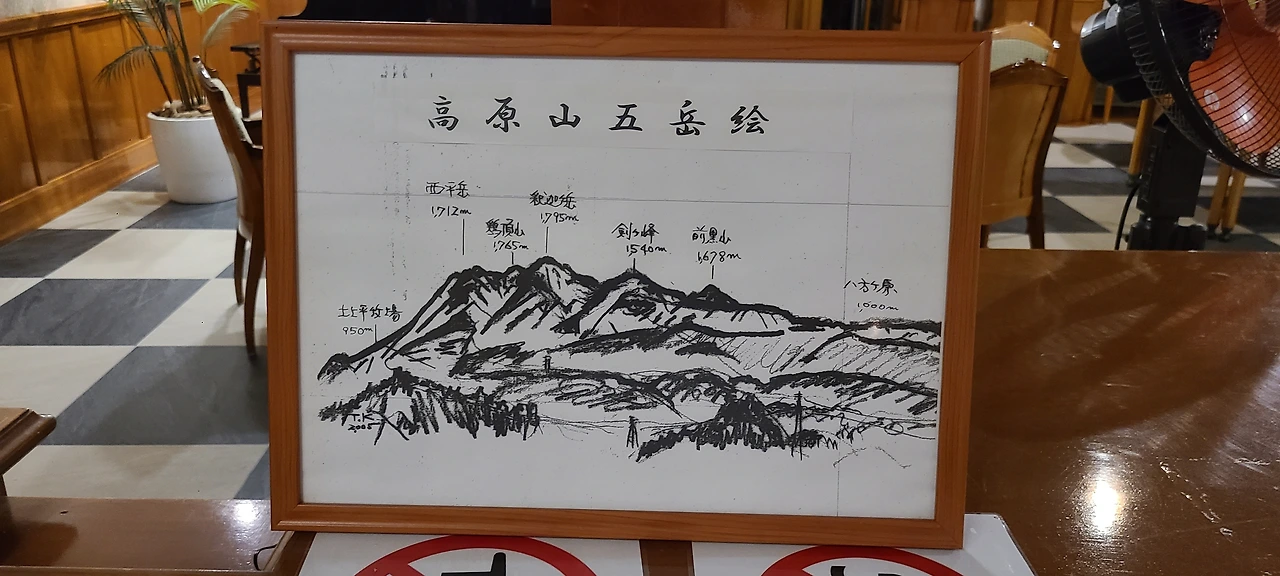 高原山五岳絵
西平岳
1,712m
鶏頂山
1,765m
釈迦岳
1,795m
剣ヶ峰
1,540m
前黒山
1,678m
八方ヶ原
1,000m
土上平牧場
950m
T.K